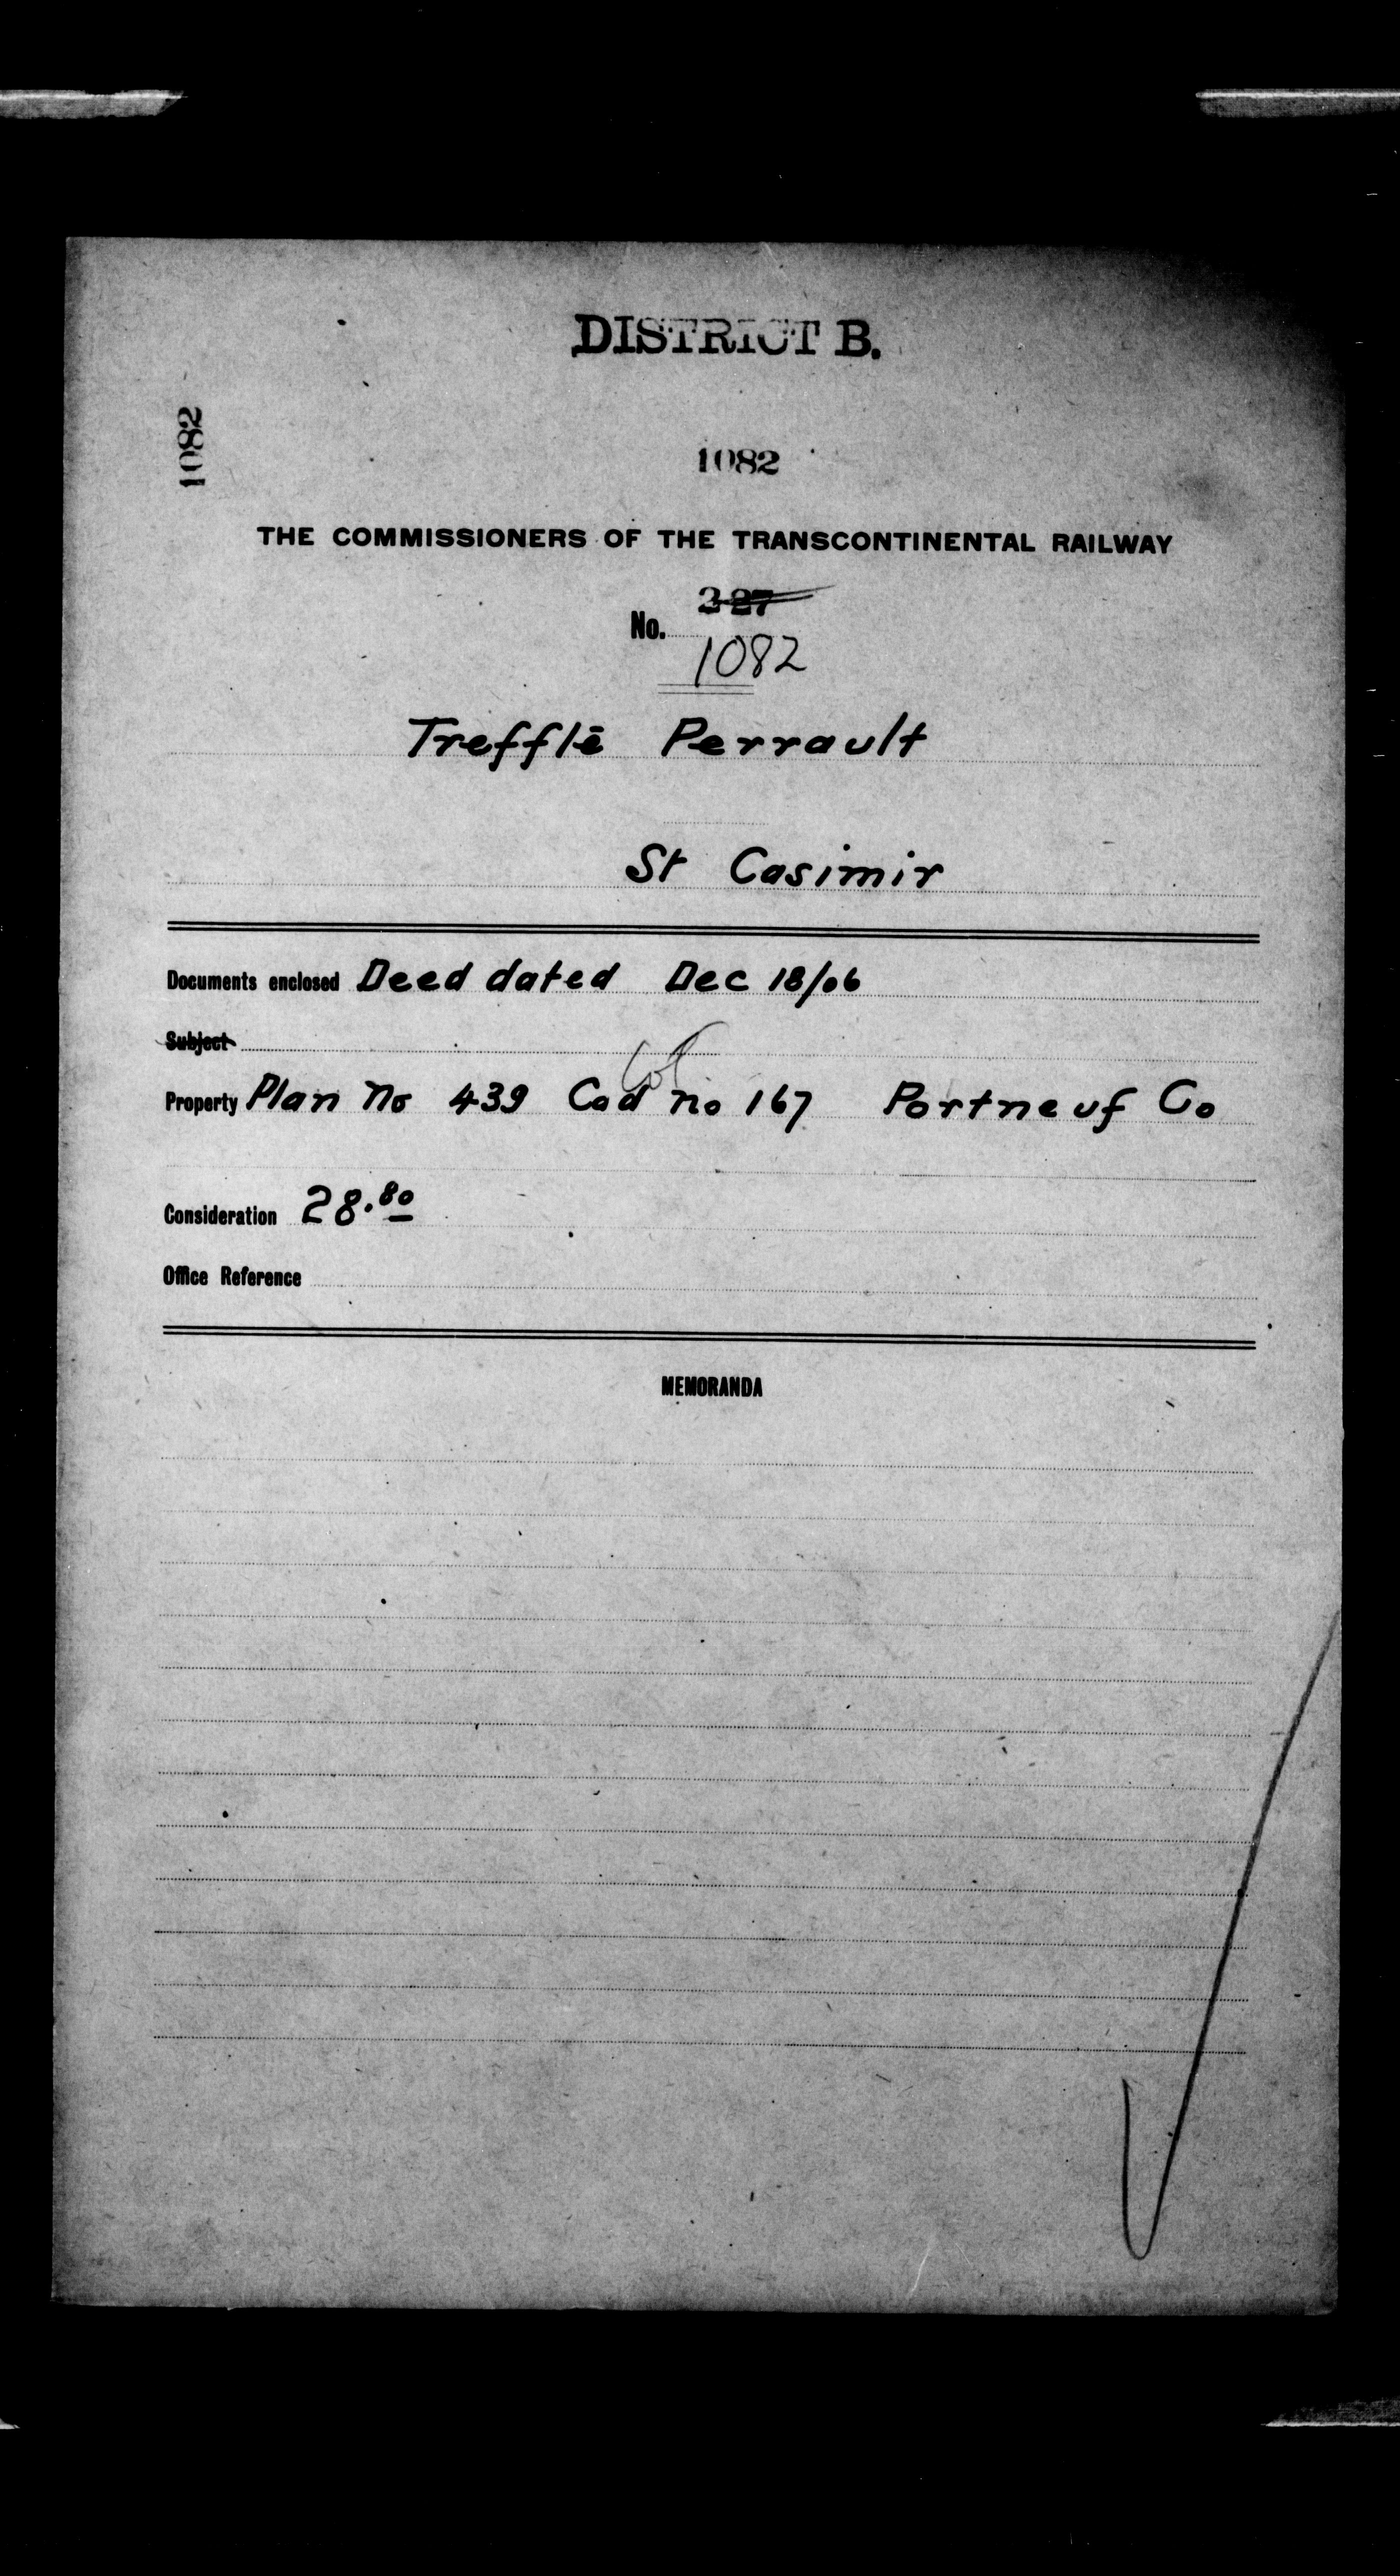 DISTRICT B.
1082
1082
THE COMMISSIONERS OF THE TRANSCONTINENTAL RAILWAY
327
No.
1082
Trefflē Perrault
St Casimir
Documents enclosed Deed dated Dec 18/06
Subject
Property Plan No 439 Cad no 167 Portneuf Co
Consideration 28.80
Office Reference
MEMORANDA